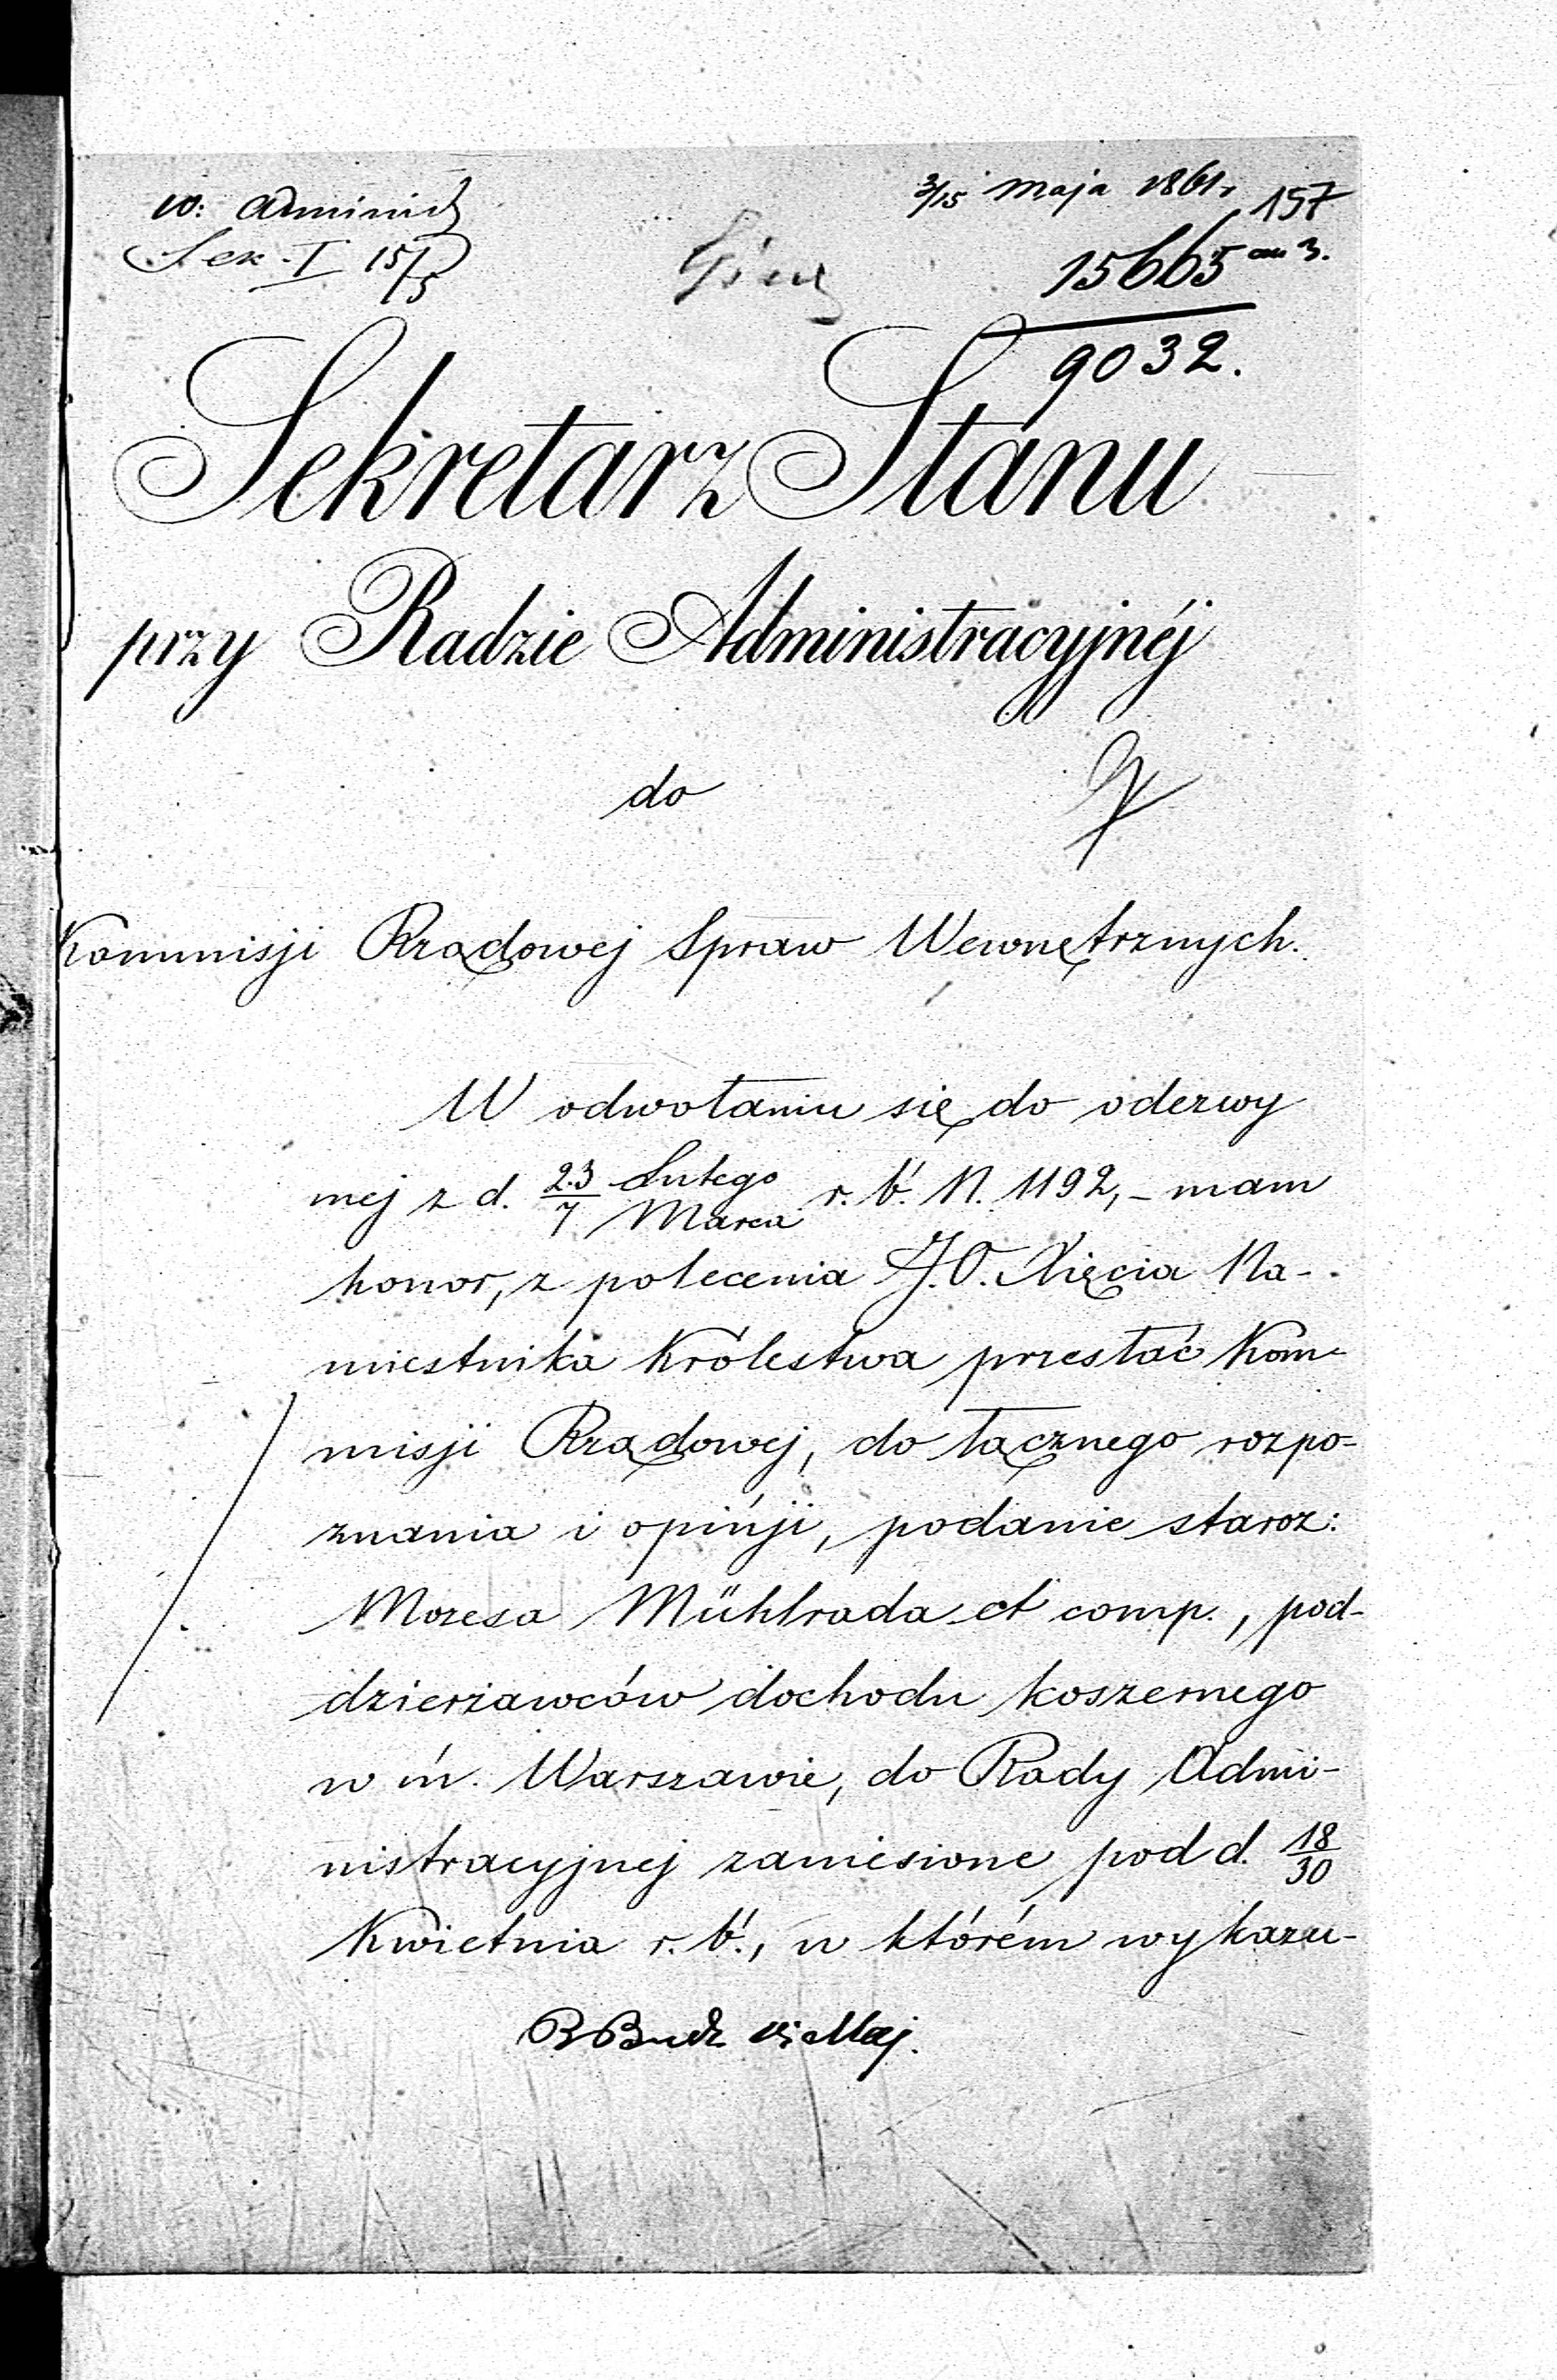 W. Administr
3/15 Maja 1861 r.
157
Sek. I 15/5
15665
9032.
Sekretarz Stanu
przy Radzie Administracyjnéj
do
Kommisji Rządowej Spraw Wewnętrznych.
W odwołaniu się do odezwy
mej z d. 23 Lutego / 7 Marca r. b. N. 1192, - mam
honor, z polecenia J.O. Xięcia Na-
miestnika Królestwa przesłać Kom-
misji Rządowej, do łącznego rozpo-
znania i opińji, podanie staroz:
Mozesa Mühlrada et comp., pod-
dzierżawców dochodu koszernego
w m. Warszawie, do Rady Admi-
nistracyjnej zaniesione pod d. 18/30
Kwietnia r. b., w którém wykazu-